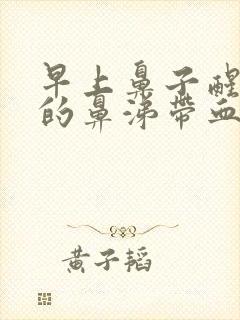 早上鼻子醒
的鼻涕帶血
黃子韜